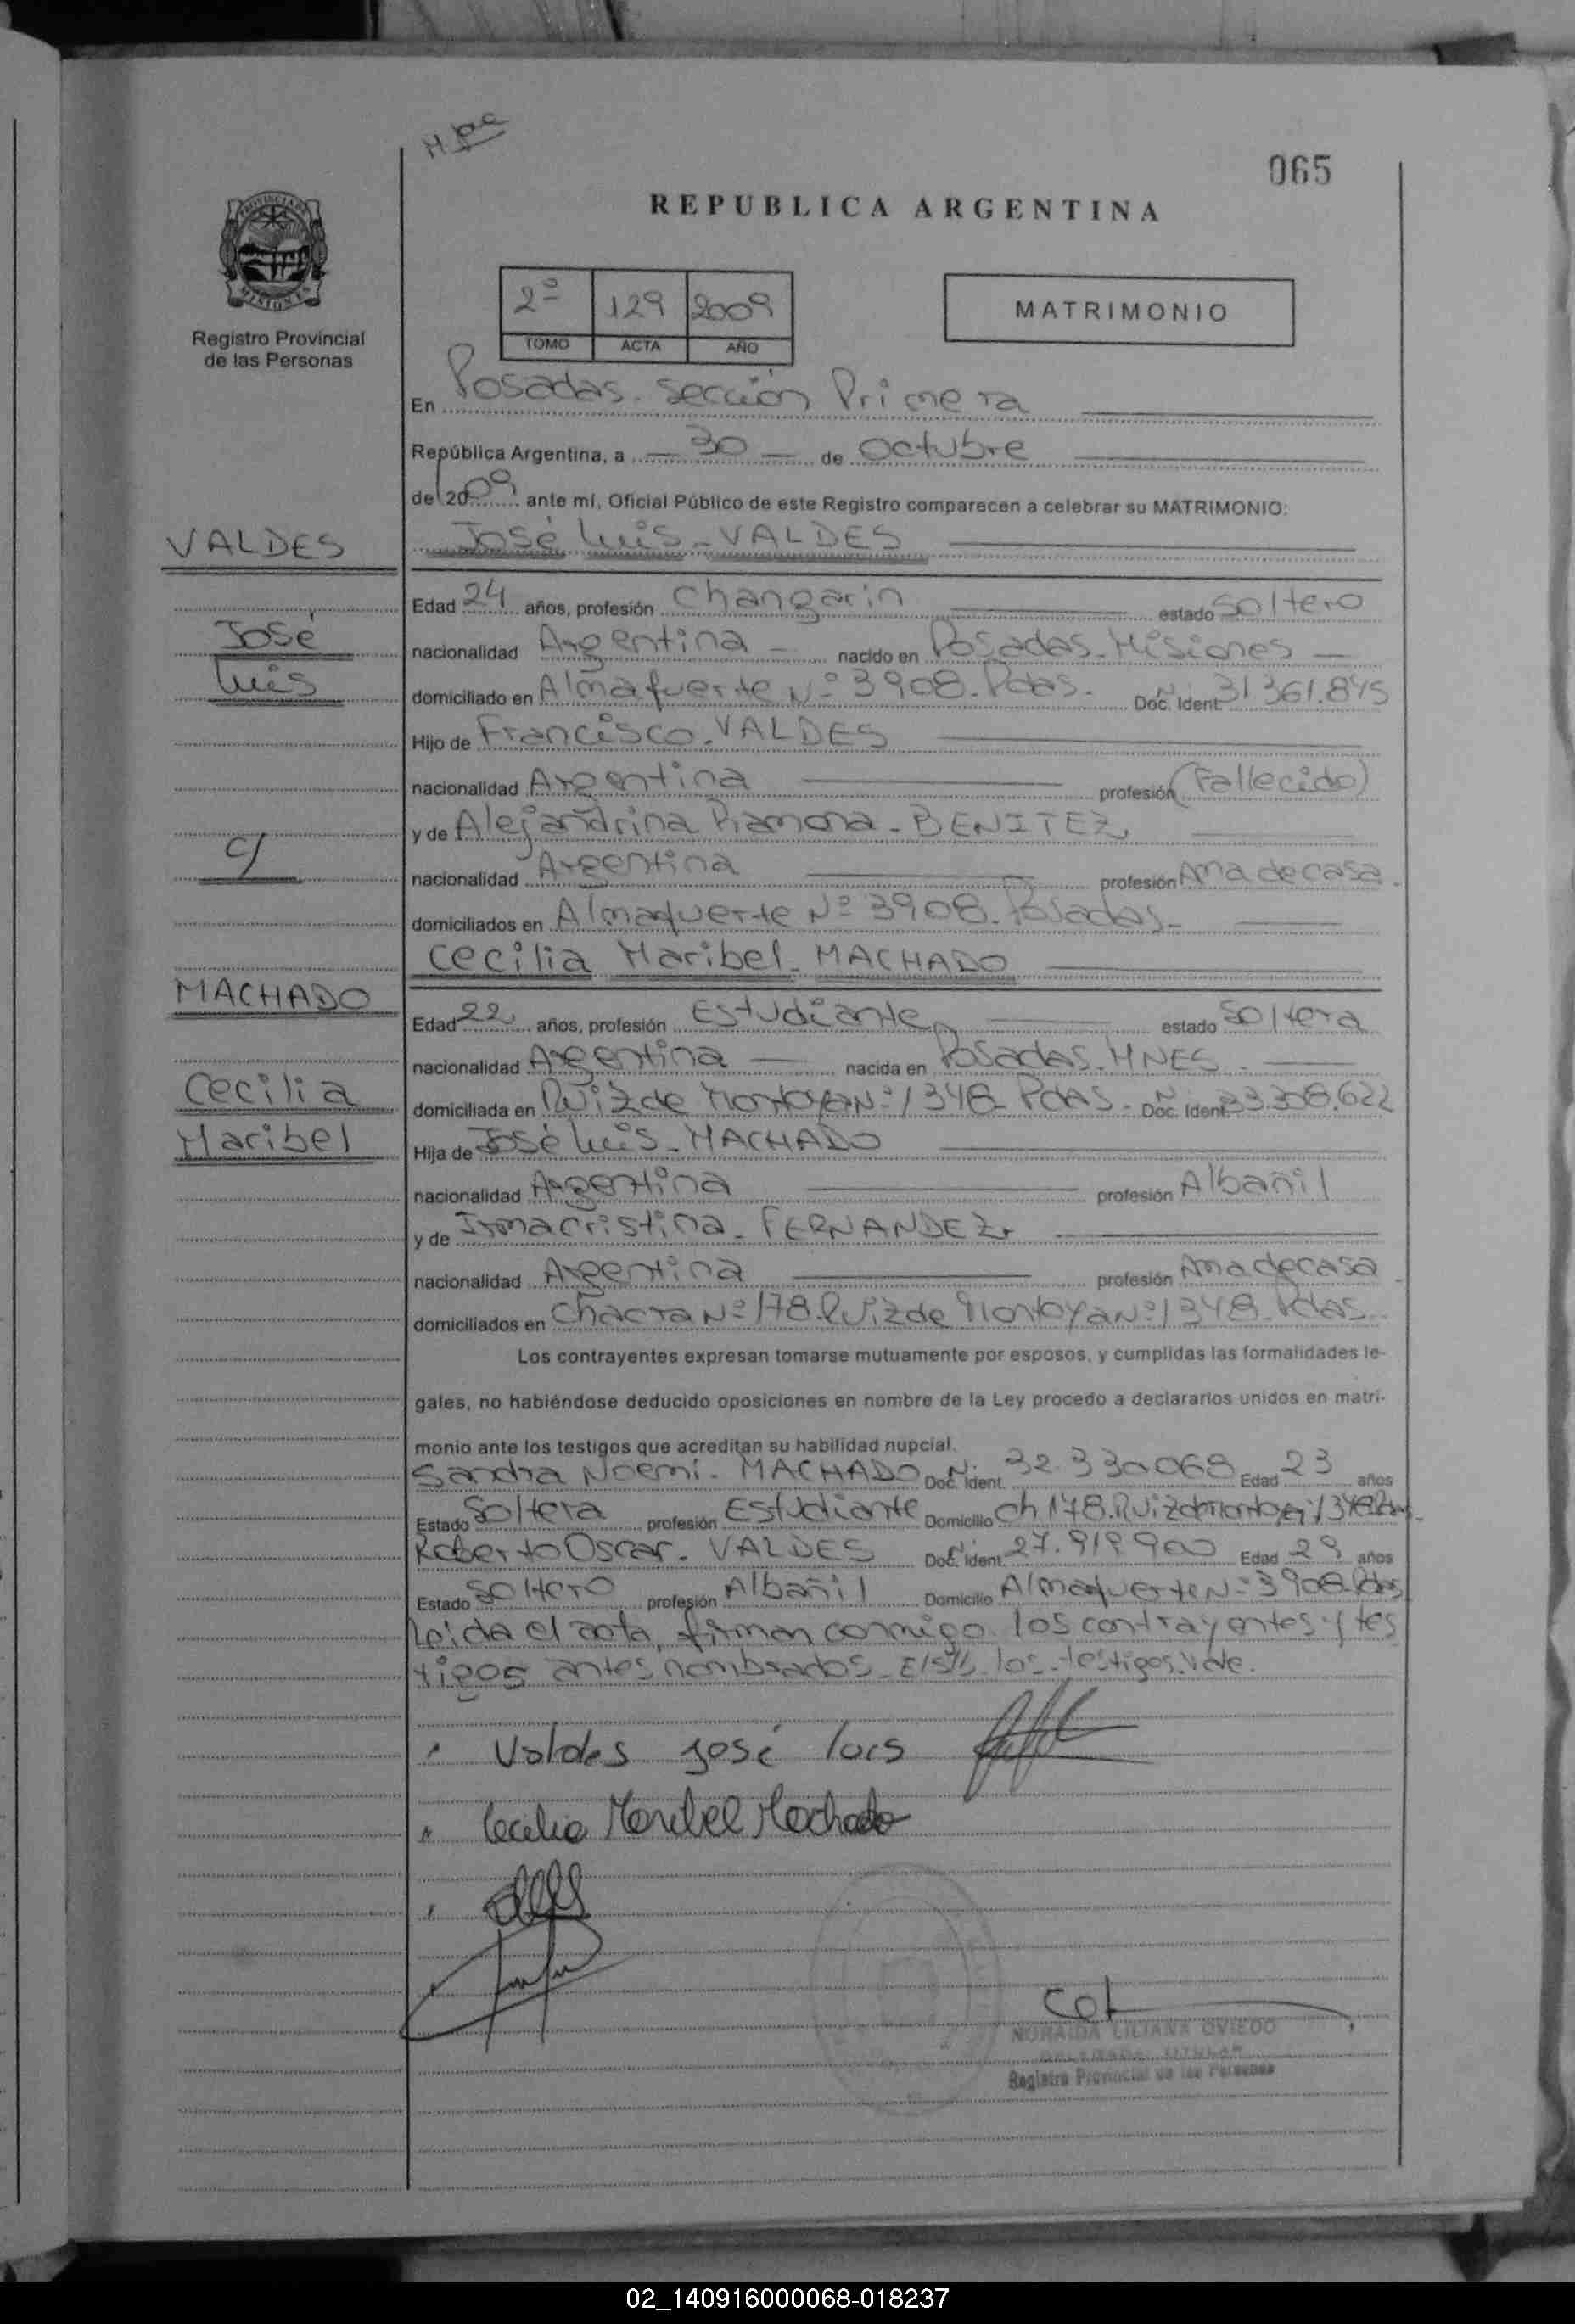 065
REPUBLICA ARGENTINA
PROVINCIA DE
MISIONES
Registro Provincial
de las Personas
2º 129 2009
TOMO ACTA AÑO
MATRIMONIO
En Posadas. sección Primera
República Argentina, a 30 de Octubre
del 2009 ante mí, Oficial Público de este Registro comparecen a celebrar su MATRIMONIO:
VALDES
José Luis - VALDES
Edad 24 años, profesión Changarin estado Soltero
José
nacionalidad Argentina - nacido en Posadas. Misiones -
Luis
domiciliado en Almafuerte Nº 3908. Pdas. Doc. Ident. Nº 31.361.845
Hijo de Francisco. VALDES
nacionalidad Argentina profesión (Fallecido)
y de Alejandrina Ramona - BENITEZ
c/
nacionalidad Argentina profesión Ama de casa.
domiciliados en Almafuerte Nº 3908. Posadas -
Cecilia Maribel - MACHADO
MACHADO
Edad 22 años, profesión Estudiante estado Soltera
nacionalidad Argentina - nacida en Posadas. MNES.
Cecilia
domiciliada en Ruiz de Montoya Nº 1348 Pdas - Doc. Ident. Nº 33.308.622
Maribel
Hija de José Luis - MACHADO
nacionalidad Argentina profesión Albañil
y de Irma Cristina - FERNANDEZ
nacionalidad Argentina profesión Ama de casa
domiciliados en Chacra Nº 178. Ruiz de Montoya Nº 1348. Pdas.
Los contrayentes expresan tomarse mutuamente por esposos, y cumplidas las formalidades le-
gales, no habiéndose deducido oposiciones en nombre de la Ley procedo a declararlos unidos en matri-
monio ante los testigos que acreditan su habilidad nupcial.
Sandra Noemi - MACHADO Doc. Ident. Nº 32.330.068 Edad 23 años
Estado Soltera profesión Estudiante Domicilio Ch 178. Ruiz de Montoya Nº 1348 Pdas.
Roberto Oscar - VALDES Doc. Ident. Nº 27.919.900 Edad 29 años
Estado Soltero profesión Albañil Domicilio Almafuerte Nº 3908 Pdas
Leída el acta, firman conmigo los contrayentes y tes
tigos antes nombrados. los testigos. Vale.
Valdes José Luis
Cecilia Maribel Machado
NORAIDA LILIANA OVIEDO
Registro Provincial de las Personas
02_140916000068-018237